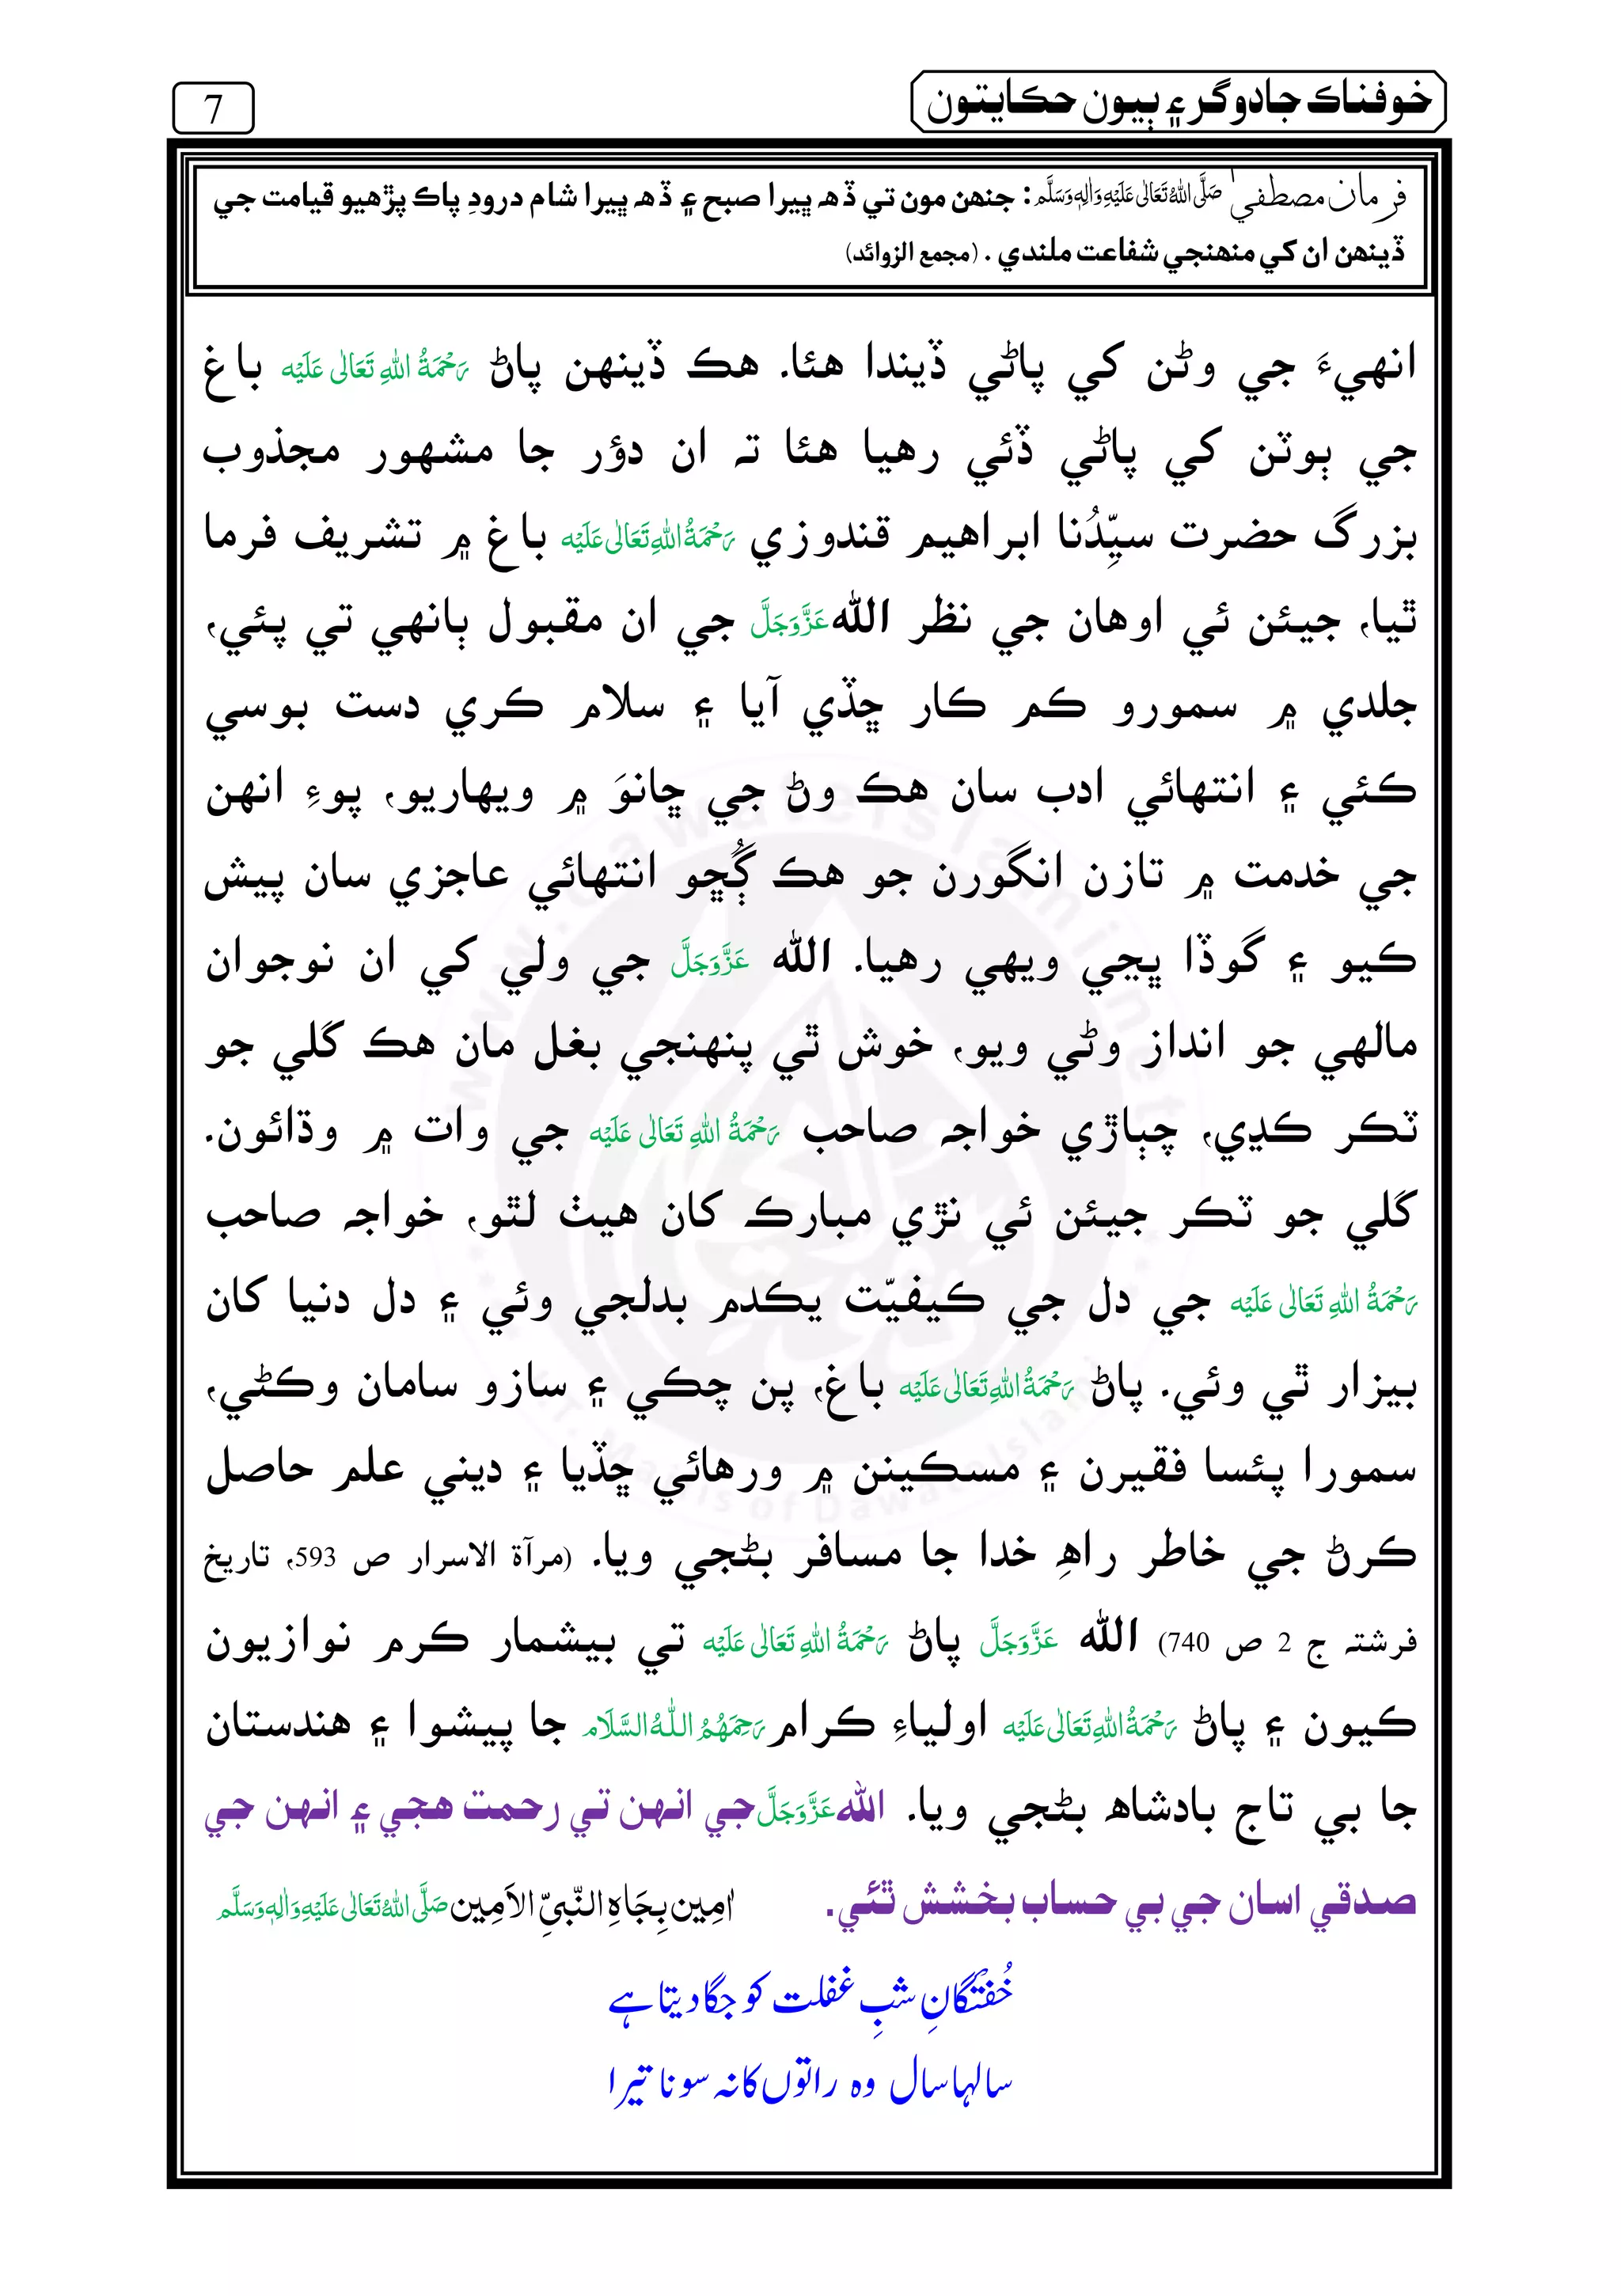 خوفناڪ جادوگر ۽ ٻيون حڪايتون
7
فرمانِ مصطفيٰ صَلَّى اللهُ تَعَالٰى عَلَيْهِ وَاٰلِهٖ وَسَلَّم: جنهن مون تي ڏھ ڀيرا صبح ۽ ڏھ ڀيرا شام درودِ پاڪ پڙهيو قيامت جي
ڏينهن ان کي منهنجي شفاعت ملندي. (مجمع الزوائد)
انهيءَ جي وڻن کي پاڻي ڏيندا هئا. هڪ ڏينهن پاڻ رَحْمَةُ اللهِ تَعَالٰى عَلَيْه باغ
جي ٻوٽن کي پاڻي ڏئي رهيا هئا تہ ان دؤر جا مشهور مجذوب
بزرگ حضرت سيِّدُنا ابراهيم قندوزي رَحْمَةُ اللهِ تَعَالٰى عَلَيْه باغ ۾ تشريف فرما
ٿيا، جيئن ئي اوهان جي نظر الله عَزَّوَجَلَّ جي ان مقبول ٻانهي تي پئي،
جلدي ۾ سمورو ڪم ڪار ڇڏي آيا ۽ سلام ڪري دست بوسي
ڪئي ۽ انتهائي ادب سان هڪ وڻ جي ڇانوَ ۾ ويهاريو، پوءِ انهن
جي خدمت ۾ تازن انگورن جو هڪ ڳُڇو انتهائي عاجزي سان پيش
ڪيو ۽ گوڏا ڀڃي ويهي رهيا. الله عَزَّوَجَلَّ جي ولي کي ان نوجوان
مالهي جو انداز وڻي ويو، خوش ٿي پنهنجي بغل مان هڪ کلي جو
ٽڪر ڪڍي، چٻاڙي خواجہ صاحب رَحْمَةُ اللهِ تَعَالٰى عَلَيْه جي وات ۾ وڌائون.
کلي جو ٽڪر جيئن ئي نڙي مبارڪ کان هيٺ لٿو، خواجہ صاحب
رَحْمَةُ اللهِ تَعَالٰى عَلَيْه جي دل جي ڪيفيّت يڪدم بدلجي وئي ۽ دل دنيا کان
بيزار ٿي وئي. پاڻ رَحْمَةُ اللهِ تَعَالٰى عَلَيْه باغ، پن چڪي ۽ سازو سامان وڪڻي،
سمورا پئسا فقيرن ۽ مسڪينن ۾ ورهائي ڇڏيا ۽ ديني علم حاصل
ڪرڻ جي خاطر راهِ خدا جا مسافر بڻجي ويا. (مرآة الاسرار ص 593، تاريخ
فرشتہ ج 2 ص 740) الله عَزَّوَجَلَّ پاڻ رَحْمَةُ اللهِ تَعَالٰى عَلَيْه تي بيشمار ڪرم نوازيون
ڪيون ۽ پاڻ رَحْمَةُ اللهِ تَعَالٰى عَلَيْه اولياءِ ڪرام رَحِمَهُمُ اللهُ السَّلَام جا پيشوا ۽ هندستان
جا بي تاج بادشاھ بڻجي ويا. الله عَزَّوَجَلَّ جي انهن تي رحمت هجي ۽ انهن جي
صدقي اسان جي بي حساب بخشش ٿئي. اٰمِين بِجَاهِ النَّبِيِّ الْاَمِين صَلَّى اللهُ تَعَالٰى عَلَيْهِ وَاٰلِهٖ وَسَلَّم
خُفتگانِ شبِ غفلت کو جگا دیتا ہے
سالہا سال وہ راتوں کا نہ سونا تیرا
www.dawateislami.net
I.T. Majlis of DawateIslami